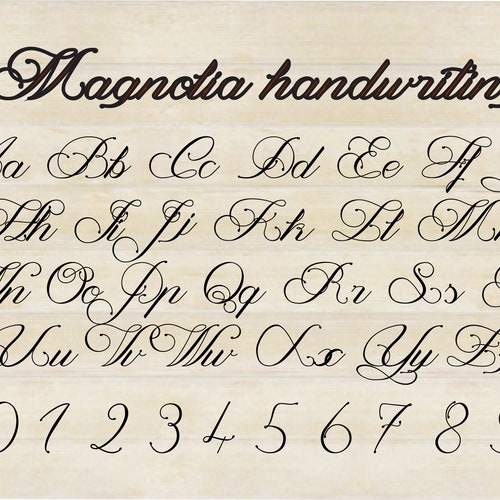 Magnolia handwritin
Aa Bb Cc Dd Ee Ff
Hh Ii Jj Kk Ll M
Nn Oo Pp Qq Rr Ss
Uu Vv Ww Xx Yy Z
0 1 2 3 4 5 6 7 8 9